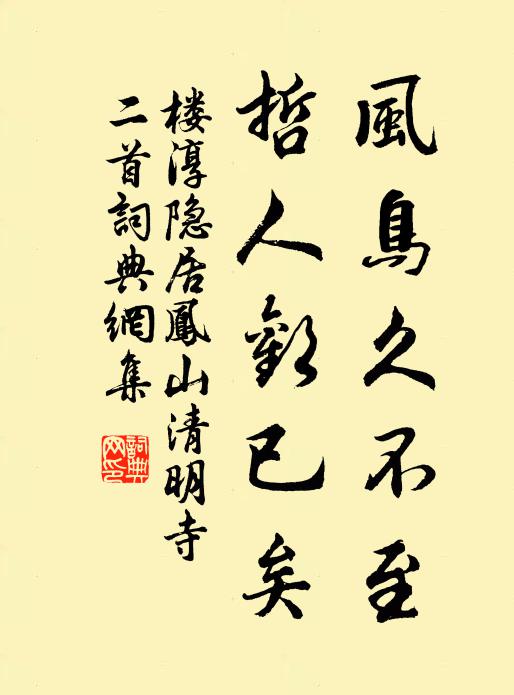 風鳥久不至
哲人歎已矣
楼淳隐居鳳山清明寺
二首詞典網集
詞典网印